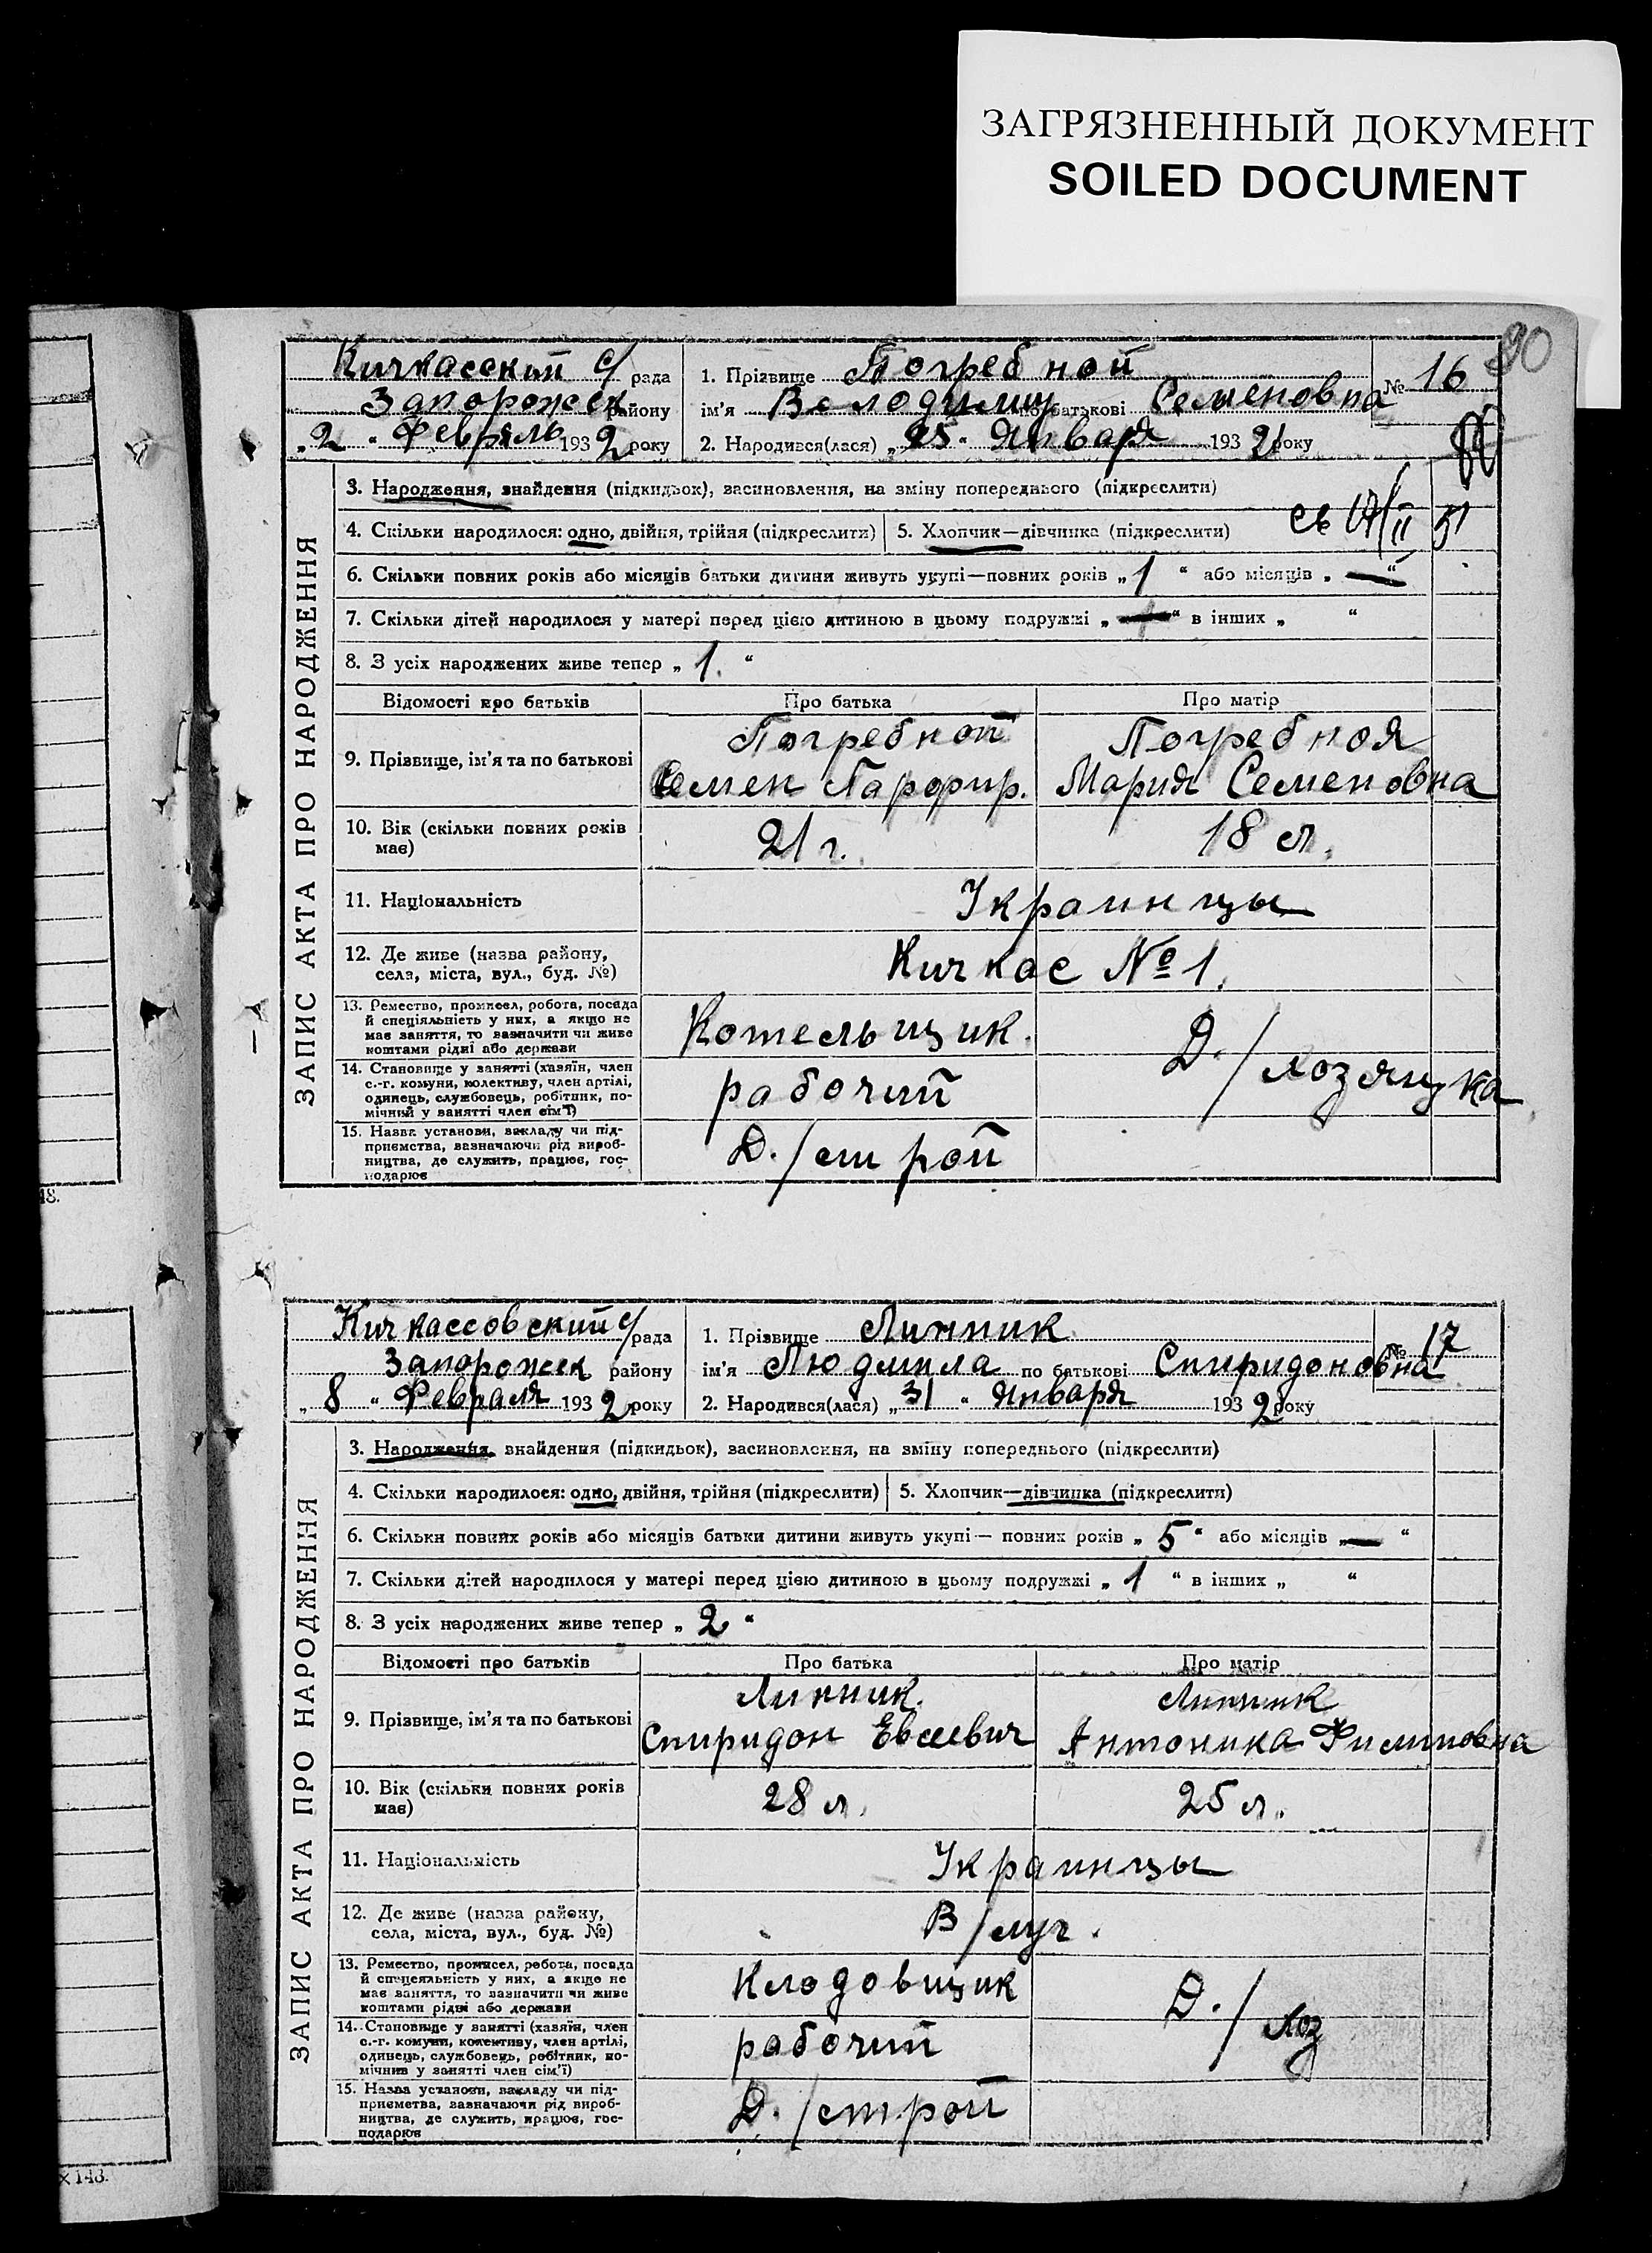 ЗАГРЯЗНЕННЫЙ ДОКУМЕНТ
SOILED DOCUMENT
90
Кичкасский с/ рада
Запорожск району
„2“ Февраль 1932 року
1. Прізвище Погребной
ім'я Володимир по батькові Семеновна
2. Народився(лася) „25“ Января 1932 року
№ 16
3. Народження, знайдення (підкидьок), засиновлення, на зміну попереднього (підкреслити)
4. Скільки народилося: одно, двійня, трійня (підкреслити)
5. Хлопчик—дівчинка (підкреслити)
51
6. Скільки повних років або місяців батьки дитини живуть укупі—повних років „1“ або місяців „—“
7. Скільки дітей народилося у матері перед цією дитиною в цьому подружжі „—“ в інших „ “
8. З усіх народжених живе тепер „1.“
ЗАПИС АКТА ПРО НАРОДЖЕННЯ
Відомості про батьків
Про батька
Про матір
9. Прізвище, ім'я та по батькові
Погребной
Семен Парфир.
Погребная
Мария Семеновна
10. Вік (скільки повних років
має)
21 г.
18 л.
11. Національність
Украинцы
12. Де живе (назва району,
села, міста, вул., буд. №)
Кичкас № 1.
13. Ремество, промисел, робота, посада
й спеціяльність у них, а якщо не
має заняття, то зазначити чи живе
коштами рідні або держави
Котельщик.
Д./хозяйка
14. Становище у занятті (хазяїн, член
с.-г. комуни, колективу, член артілі,
одинець, службовець, робітник, по-
мічний у занятті член сім'ї)
рабочий
15. Назва установи, закладу чи під-
приємства, зазначаючи рід вироб-
ництва, де служить, працює, гос-
подарює
Д./строй
48.
Кичкассовский с/ рада
Запорожск району
„8“ Февраля 1932 року
1. Прізвище Линник
ім'я Людмила по батькові Спиридоновна
2. Народився(лася) „31“ Января 1932 року
№ 17
3. Народження, знайдення (підкидьок), засиновлення, на зміну попереднього (підкреслити)
4. Скільки народилося: одно, двійня, трійня (підкреслити)
5. Хлопчик—дівчинка (підкреслити)
6. Скільки повних років або місяців батьки дитини живуть укупі— повних років „5“ або місяців „—“
7. Скільки дітей народилося у матері перед цією дитиною в цьому подружжі „1“ в інших „ “
8. З усіх народжених живе тепер „2“
ЗАПИС АКТА ПРО НАРОДЖЕННЯ
Відомості про батьків
Про батька
Про матір
9. Прізвище, ім'я та по батькові
Линник.
Спиридон Евсеевич
Линник
Антонина Филиповна
10. Вік (скільки повних років
має)
28 л.
25 л.
11. Національність
Украинцы
12. Де живе (назва району,
села, міста, вул., буд. №)
В/луг.
13. Ремество, промисел, робота, посада
й спецеяльність у них, а якщо не
має заняття, то зазначити чи живе
коштами рідні або держави
Кладовщик
Д./хоз
14. Становище у занятті (хазяїн, член
с.-г. комуни, колективу, член артілі,
одинець, службовець, робітник, по-
мічник у занятті член сім'ї)
рабочий
15. Назва установи, закладу чи під-
приємства, зазначаючи рід вироб-
ництва, де служить, працює, гос-
подарює
Д./строй
×148.